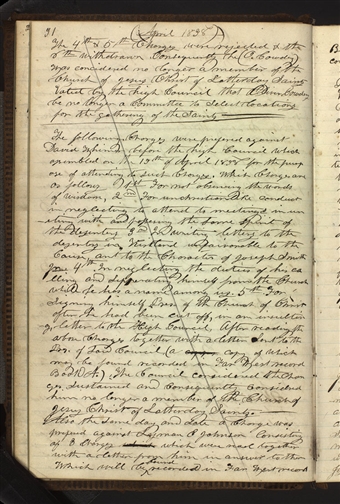 31 (April 1838)
The 4th & 5th Charges were rejected & the
6th withdrawn Consequently he (O. Cowdery)
was considered no longer a member of the
Church of Jesus Christ of Latter day Saints
Voted by the high Council that Oliver Cowdery
be no longer a Committee to Select locations
for the gathering of the Saints
The following Charges were prefered against
David Whitmer before the high Council which
assembled on the 13th of April 1838 for the purp
ose of attending to such Charges, Which Charges are
as follows 1st For not observing the words
of wisdom, 2nd For unchristianlike conduct
in neglecting to attend to meetings in un
iting with and possessing the same spirit of
the desenters 3rd In writing letters to the
desenters in Kirtland unfavorable to the
Cause, and to the Character of Joseph Smith
Jr. 4th In neglecting the duties of his ca
lling and seperating himself from the Church
while he has a name among us. 5th For
Signing himself Pres. of the Church of Christ
after he had been cut off, in an insulting
letter to the High Council, After reading the
above Charges together with a letter sent to the
Pres. of said Council (a copy of which
may be found recorded in Far West record
Book A) The Council considered the Char
ges sustained and Consequently Considered
him no longer a member of the Church of
Jesus Christ of Latter day Saints.
Also the same day and date a Charge was
prefered against Lyman E Johnson Consisting
of 3 Charges which were read together
with a letter from him in answer to them
Which will be found recorded in Far West record